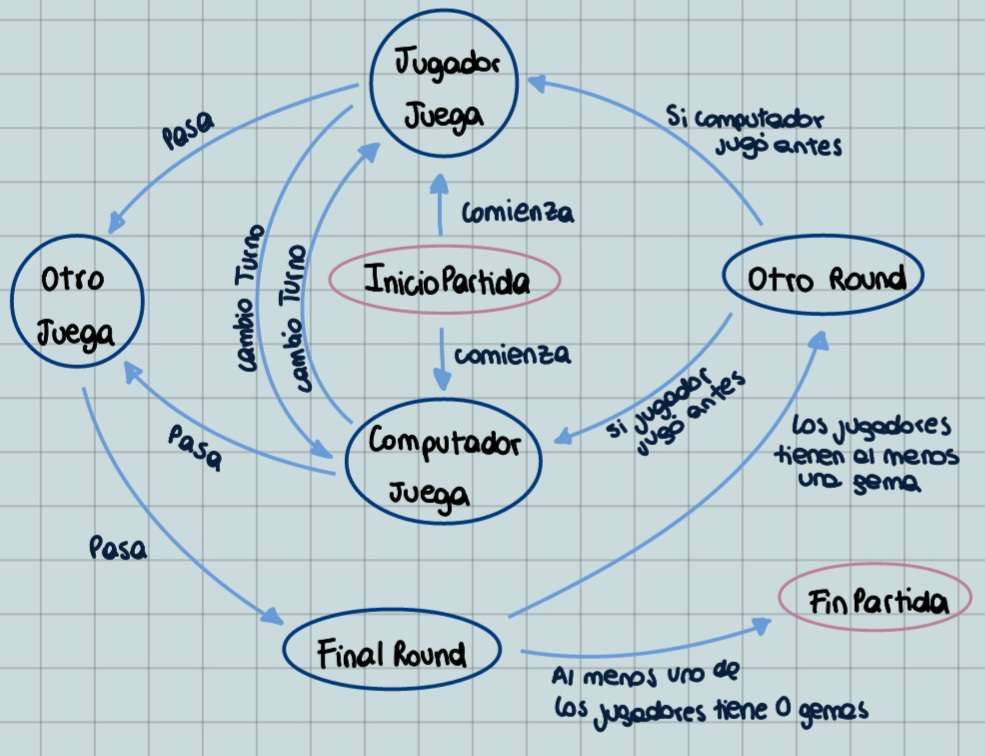 Jugador
Juega
Pasa
Si computador
jugó antes
cambio Turno
cambio Turno
comienza
Inicio Partida
Otro Round
Otro
Juega
comienza
si jugador
jugó antes
Computador
Juega
Pasa
Los jugadores
tienen al menos
una gema
Pasa
Fin Partida
Final Round
Al menos uno de
los jugadores tiene 0 gemas